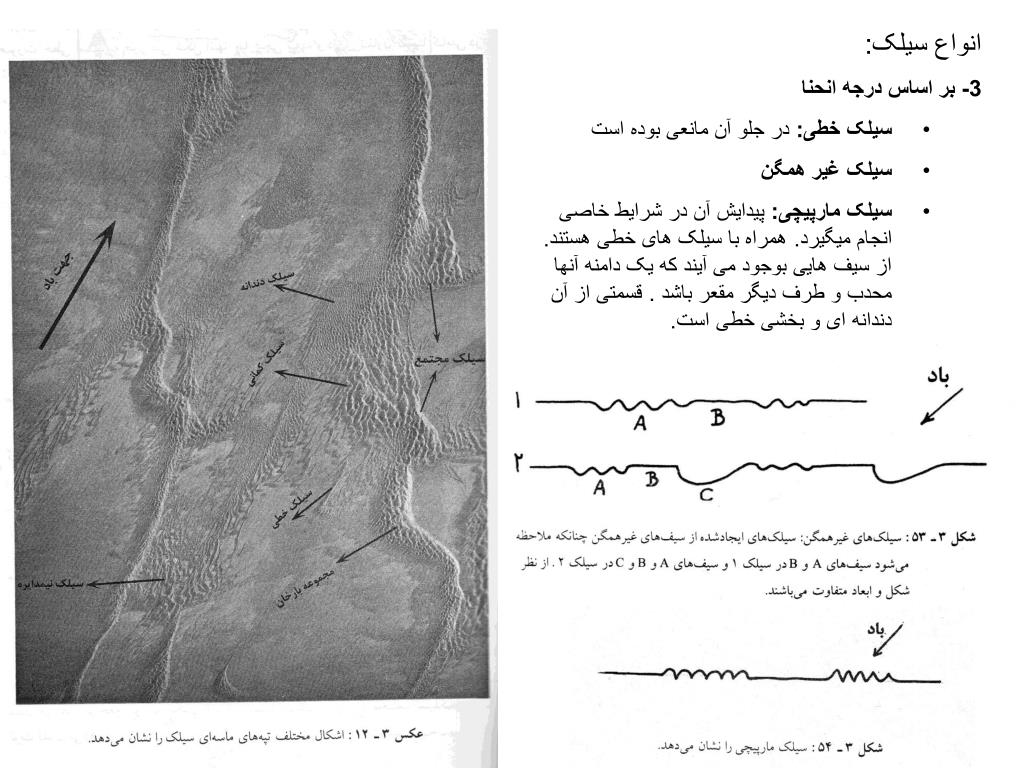 انواع سیلک:
3- بر اساس درجه انحنا
• سیلک خطی: در جلو آن مانعی بوده است
• سیلک غیر همگن
• سیلک مارپیچی: پیدایش آن در شرایط خاصی
انجام میگیرد. همراه با سیلک های خطی هستند.
از سیف هایی بوجود می آیند که یک دامنه آنها
محدب و طرف دیگر مقعر باشد . قسمتی از آن
دندانه ای و بخشی خطی است.
باد
۱
A
B
۲
A
B
C
شکل ۳ ـ ۵۳ : سیلک‌های غیرهمگن: سیلک‌های ایجادشده از سیف‌های غیرهمگن چنانکه ملاحظه
می‌شود سیف‌های A و B در سیلک ۱ و سیف‌های A و B و C در سیلک ۲ . از نظر
شکل و ابعاد متفاوت می‌باشند.
باد
شکل ۳ ـ ۵۴ : سیلک مارپیچی را نشان می‌دهد.
جهت باد
سیلک دندانه
سیلک مجتمع
سیلک کمانی
سیلک خطی
مجموعه بارخان
سیلک نیمدایره
عکس ۳ ـ ۱۲ : اشکال مختلف تپه‌های ماسه‌ای سیلک را نشان می‌دهد.